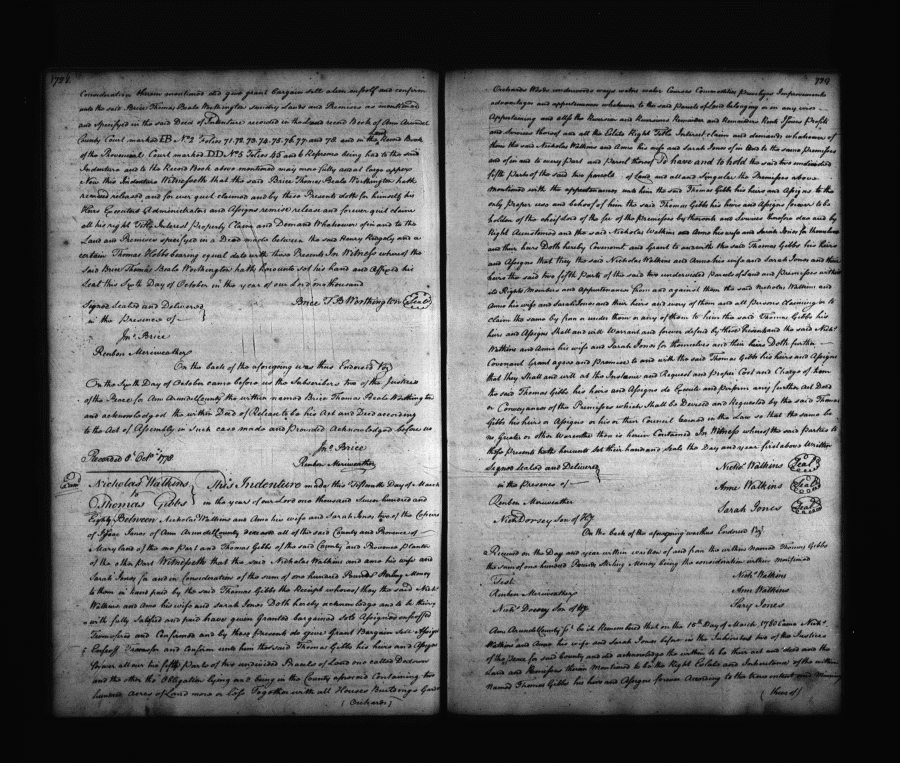 1728
Consideration therein mentioned did give grant bargain sell alien enfeoff and confirm
unto the said Brice Thomas Beale Worthington sundry Lands and Premises as mentioned
and specifyed in the said Deed of Indenture recorded in the Land record Book of Ann Arundel
County Court marked IB No 2 Folios 71. 72. 73. 74. 75. 76. 77. and 78. and in the Land Record Book
of the Provincial Court marked DD No 5 Folios 45 and 6 Reference being had to the said
Indenture and to the Record Book above mentioned may more fully and at large appear
Now this Indenture Witnesseth that the said Brice Thomas Beale Worthington hath
remised released and for ever quit claimed and by these Presents doth for himself his
Heirs Executors Administrators and Assigns remise release and forever quit claim
all his right Title Interest Property Claim and Demand Whatsoever of in and to the
Land and Premises specifyed in a Deed made between the said Henry Ridgely and a
certain Thomas Hobbs bearing equal date with these Presents In Witness whereof the
said Brice Thomas Beale Worthington hath hereunto set his hand and Affixed his
Seal this Sixth Day of October in the year of our Lord one thousand
Signed Sealed and Delivered } Brice T B Worthington (Seal)
in the presence of
Jno Brice
Reuben Meriweather
On the back of the aforegoing was thus Endorsed Viz
On the Sixth Day of October came before us the Subscribers two of the Justices
of the Peace for Ann Arundel County the within named Brice Thomas Beale Worthington
and acknowledged the within Deed of Release to be his Act and Deed according
to the Act of Assembly in such case made and provided Acknowledged before us
Jno Brice
Recorded 8th Octr 1778
Reuben Meriweather
Nicholas Watkins } This Indenture made this Fifteenth Day of March
to
Thomas Gibbs } in the year of our Lord one thousand Seven hundred and
Eighty Between Nicholas Watkins and Anne his wife and Sarah Jones two of the
of Isaac Jones of Ann Arundel County deceased all of the said County and Province of
Maryland of the one Part and Thomas Gibbs of the said County and Province Planter
of the other part Witnesseth that the said Nicholas Watkins and Anne his wife and
Sarah Jones for and in Consideration of the sum of one hundred Pounds Sterling Money
to them in hand paid by the said Thomas Gibbs the Receipt whereof they the said Nichs
Watkins and Anne his wife and Sarah Jones Doth hereby acknowledge and to be therein
fully Satisfied and paid have given Granted bargained sold Assigned enfeoffed
Transfered and Confirmed and by these presents do give Grant Bargain Sell Assign
Enfeoff Transfer and Confirm unto him the said Thomas Gibbs his heirs and Assigns
forever all our two fifth parts of two undivided Tracts of Land one called
and the other the Obligation lying and being in the County aforesaid Containing two
hundred Acres of Land more or less Together with all Houses Buildings Gardens
(Orchards)
729
Orchards Woods underwoods ways waters water Courses Commodities Priviledges Improvements
advantages and appurtenances whatsoever to the said Parcels of Land belonging or in any wise
Appertaining and also the Reversion and Reversions Remainder and Remainders Rents Issues Profits
and Services thereof and all the Estate Right Title Interest claim and demands whatsoever of
them the said Nicholas Watkins and Anne his wife and Sarah Jones of in and to the same premises
and of in and to every Part and parcel thereof To have and to hold the said two undivided
fifth parts of the said two parcels of Land and all and Singular the Premises above
Mentioned with the appurtenances unto him the said Thomas Gibbs his heirs and Assigns to the
only Proper use and behoof of him the said Thomas Gibbs his heirs and Assigns forever to be
holden of the chief Lord of the fee of the premises by the rents and Services therefore due and by
Right Accustomed and the said Nicholas Watkins and Anne his wife and Sarah Jones for themselves
and their heirs Doth hereby Covenant and Grant to and with the said Thomas Gibbs his heirs
and Assigns that they the said Nicholas Watkins and Anne his wife and Sarah Jones and their
heirs the said two fifth Parts of the said two undivided Parcels of Land and Premises with
its Rights Members and Appurtenances from and against them the said Nicholas Watkins and
Anne his wife and Sarah Jones and their heirs and every of them and all Persons Claiming or to
claim the same by from or under them or any of them to him the said Thomas Gibbs his
heirs and Assigns Shall and will Warrant and forever defend by these Presents and the said Nichs
Watkins and Anne his wife and Sarah Jones for themselves and their heirs Doth further
Covenant Grant agree and Promise to and with the said Thomas Gibbs his heirs and Assigns
that they Shall and will at the Instance and Request and Proper Cost and Charge of him
the said Thomas Gibbs his heirs and Assigns do Execute and Perform any further Act Deed
or Conveyance of the Premises which Shall be Devised and Requested by the said Thomas
Gibbs his heirs or Assigns or his or their Council learned in the Law so that the same be
no Greater or other Warranties than is herein Contained In Witness whereof the said parties to
these Presents hath hereunto Set their hand and Seals the Day and year first above Written
Signed Sealed and Delivered } Nichs Watkins (Seal)
in the presence of Anne Watkins (Seal)
Reuben Meriweather Sarah Jones (Seal)
Nichs Dorsey Son of Hy
On the back of the aforegoing was thus Endorsed Viz
Received on the Day and year within written of and from the within Named Thomas Gibbs
the sum of one hundred Pounds Sterling Money being the consideration within mentioned
Test Nichs Watkins
Reuben Meriweather Ann Watkins
Nichs Dorsey Son of Hy Sary Jones
Ann Arundel County Sc be it Remembered that on the 15th Day of March 1780 Came Nichs
Watkins and Anne his wife and Sarah Jones before us the Subscribers two of the Justices
of the Peace for said County and did acknowledge the within to be their act and deed and the
Land and Premises therein Mentioned to be the Right Estate and Inheritance of the within
Named Thomas Gibbs his heirs and Assigns forever According to the true intent and Meaning
(thereof)